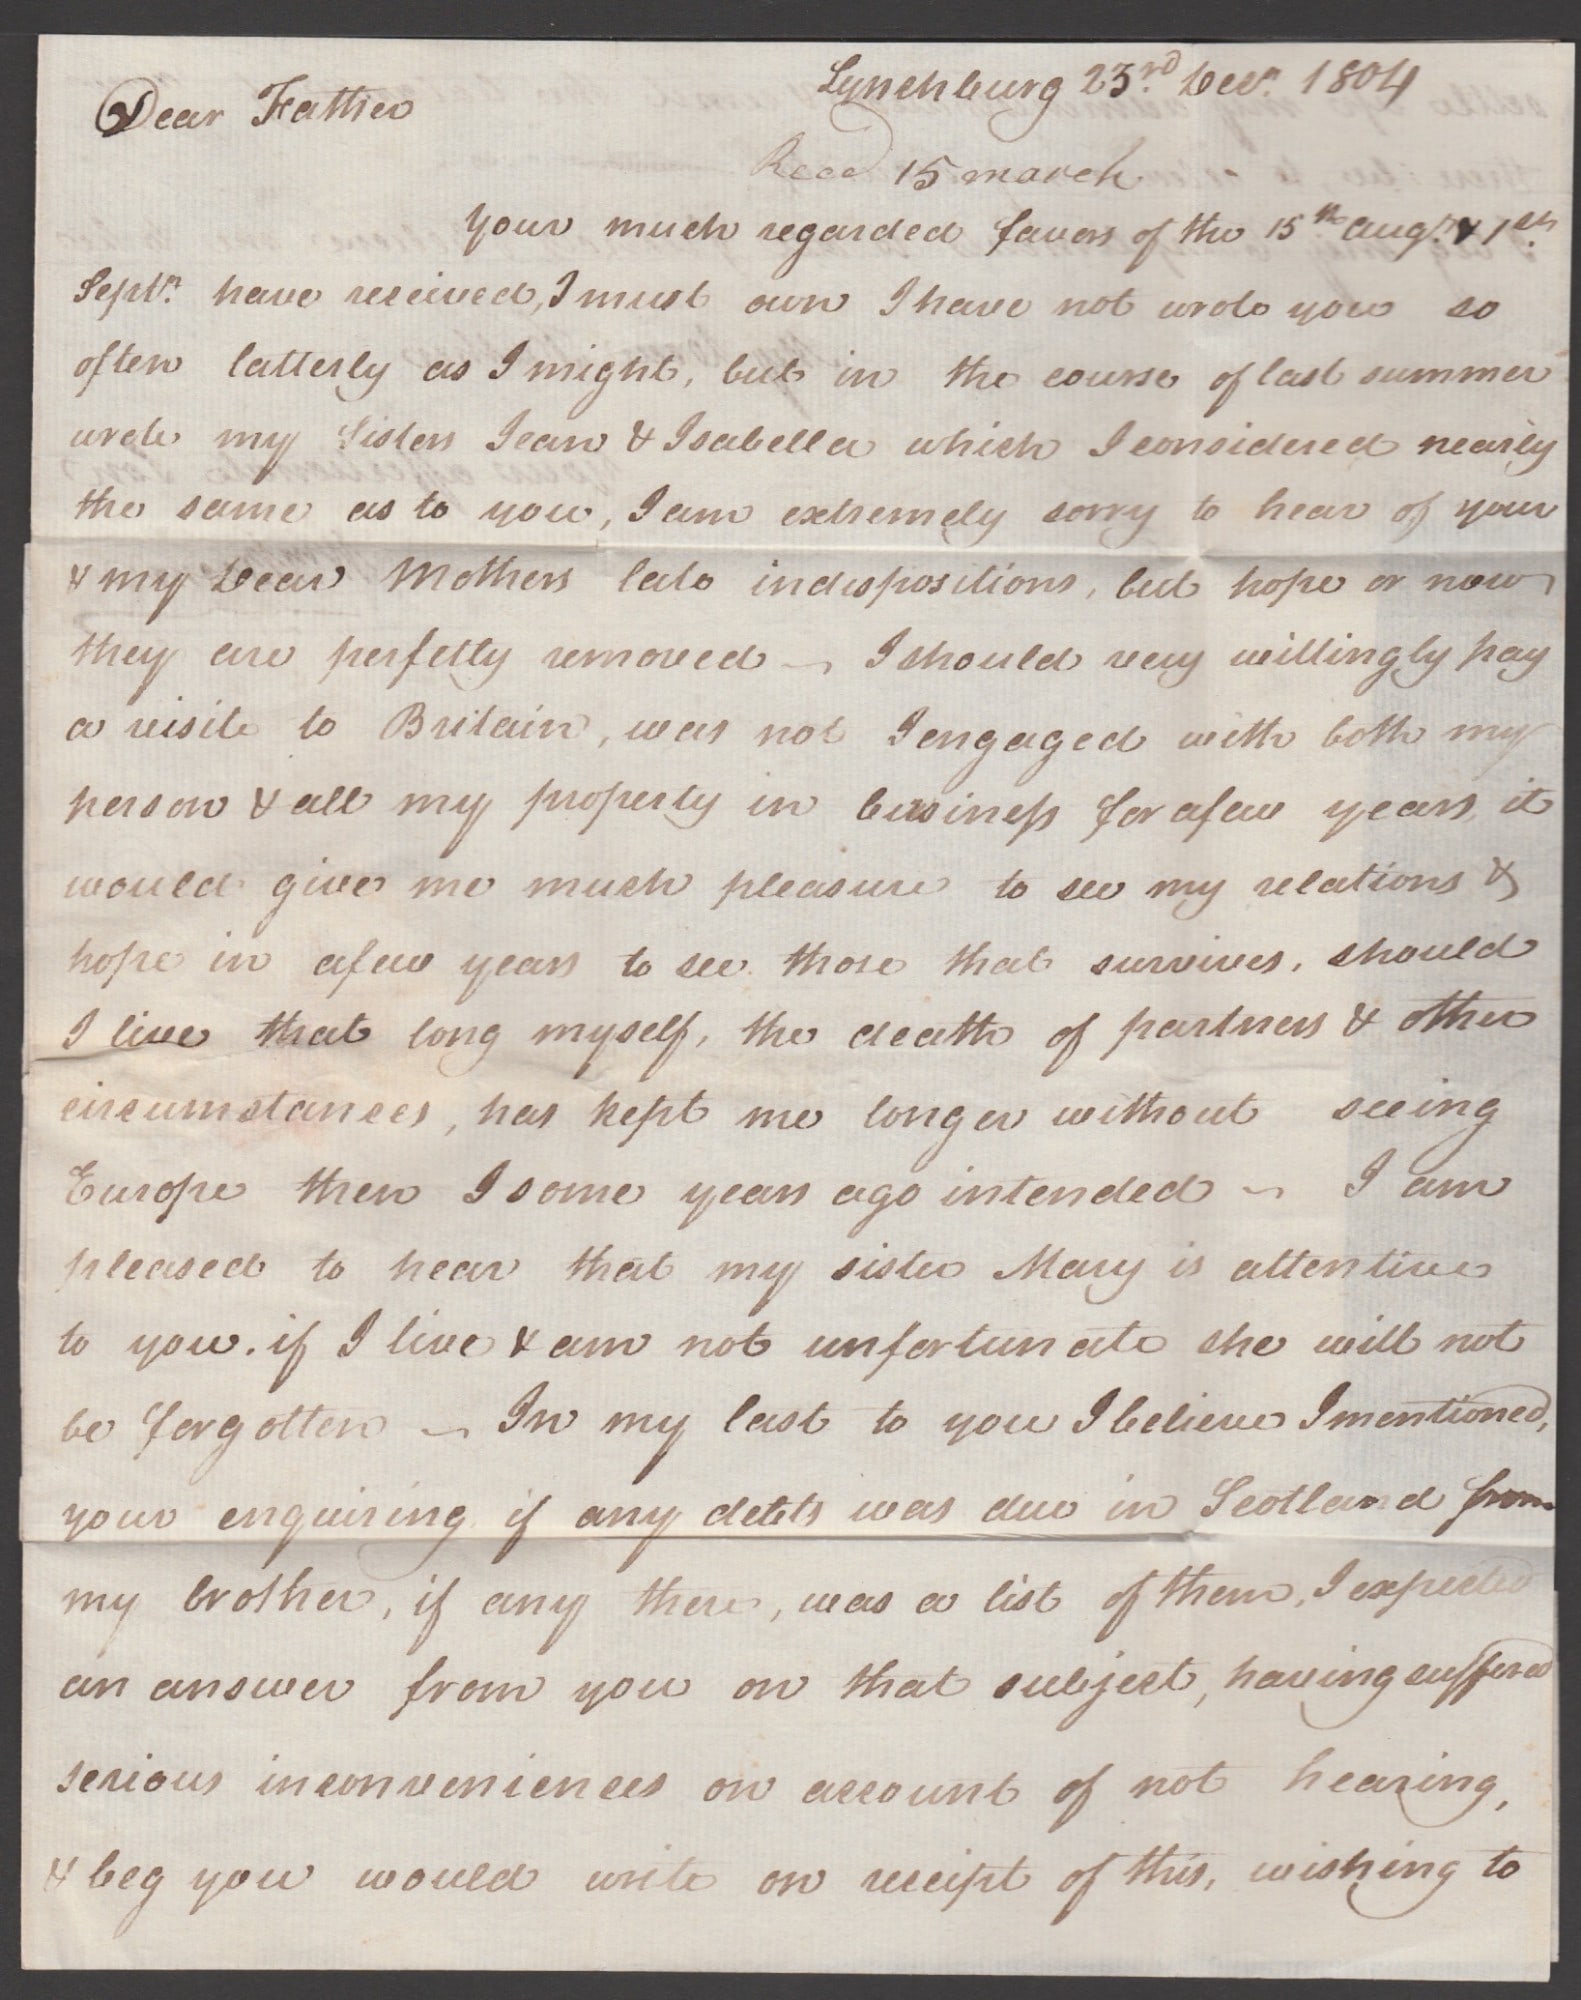 Lynchburg 23rd Decr. 1804
Dear Father
Recd 15 march
Your much regarded favors of the 15th Augt. & 1st
Septr. have received, I must own I have not wrote you so
often latterly as I might, but in the course of last summer
wrote my Sisters Jean & Isabella which I considered nearly
the same as to you, I am extremely sorry to hear of your
& my Dear Mothers late indispositions, but hope er now
they are perfetly removed ~ I should very willingly pay
a visite to Britain, was not I engaged with both my
person & all my property in business for a few years, it
would give me much pleasure to see my relations &
hope in a few years to see those that survives, should
I live that long myself, the death of partners & other
circumstances, has kept me longer without seeing
Europe then I some years ago intended ~ I am
pleased to hear that my sister Mary is attentive
to you. if I live & am not unfortunate she will not
be forgotten ~ In my last to you I believe I mentioned,
your enquiring if any debts was due in Scotland from
my brother, if any there, was a list of them, I expected
an answer from you on that subject, having suffered
serious inconveniences on account of not hearing,
& beg you would write on receipt of this, wishing to